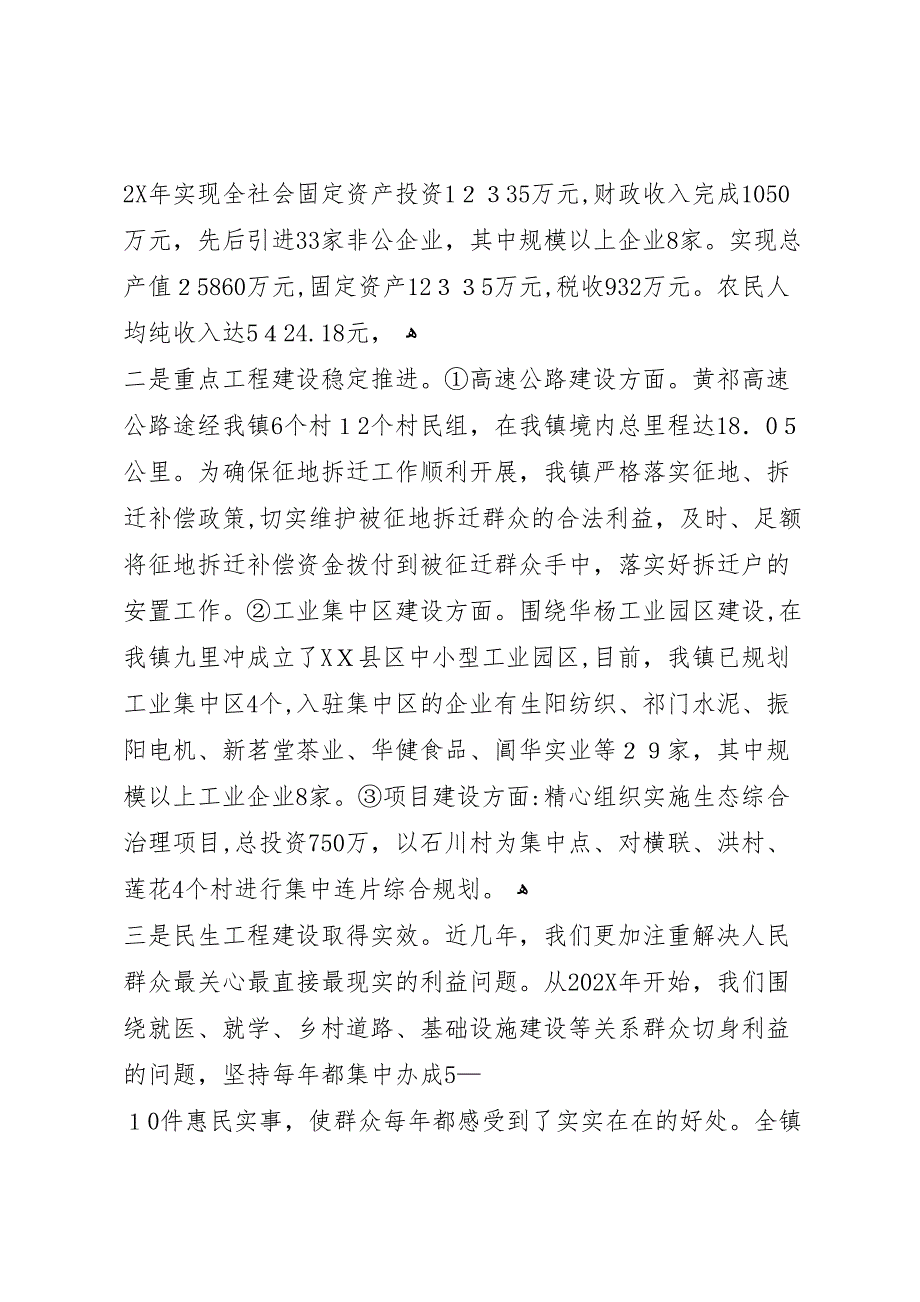 2X年实现全社会固定资产投资1２３35万元,财政收入完成1050
万元，先后引进33家非公企业，其中规模以上企业8家。实现总
产值２5860万元,固定资产12３３5万元,税收932万元。农民人
均纯收入达5４24.18元，ﻫ
二是重点工程建设稳定推进。①高速公路建设方面。黄祁高速
公路途经我镇6个村１２个村民组，在我镇境内总里程达18．０５
公里。为确保征地拆迁工作顺利开展，我镇严格落实征地、拆
迁补偿政策,切实维护被征地拆迁群众的合法利益，及时、足额
将征地拆迁补偿资金拨付到被征迁群众手中，落实好拆迁户的
安置工作。②工业集中区建设方面。围绕华杨工业园区建设,在
我镇九里冲成立了XＸ县区中小型工业园区,目前，我镇已规划
工业集中区4个,入驻集中区的企业有生阳纺织、祁门水泥、振
阳电机、新茗堂茶业、华健食品、阊华实业等２９家，其中规
模以上工业企业8家。③项目建设方面:精心组织实施生态综合
治理项目,总投资750万，以石川村为集中点、对横联、洪村、
莲花4个村进行集中连片综合规划。ﻫ
三是民生工程建设取得实效。近几年，我们更加注重解决人民
群众最关心最直接最现实的利益问题。从202X年开始，我们围
绕就医、就学、乡村道路、基础设施建设等关系群众切身利益
的问题，坚持每年都集中办成5—
１0件惠民实事，使群众每年都感受到了实实在在的好处。全镇